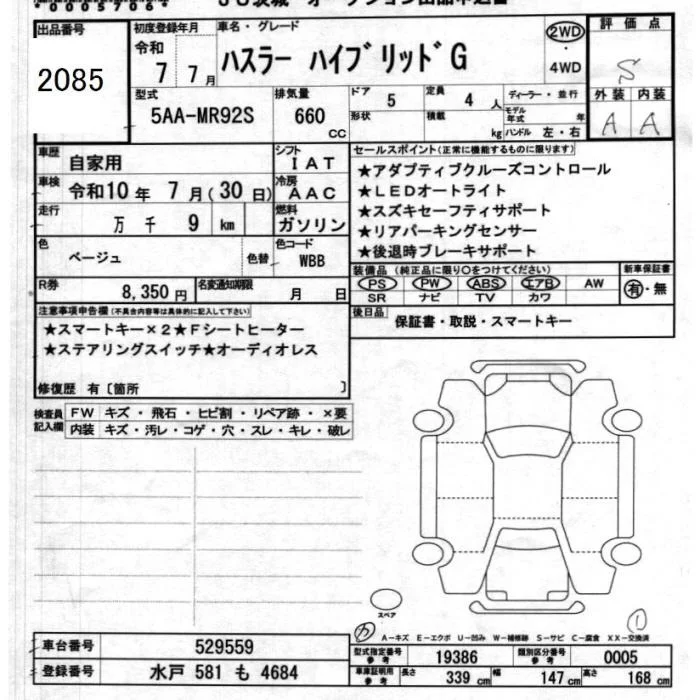 出品番号 2085
初度登録年月 令和 7 7 月
車名・グレード ハスラー ハイブリッドG
2WD・4WD
評価点 S
外装 内装
A A
型式 5AA-MR92S
排気量 660 CC
ドア 5 定員 4 人
形状 積載 kg
ディーラー・並行
モデル年式 年
ハンドル 左・右
車歴 自家用
シフト IAT
車検 令和10年 7月(30日)
冷房 AAC
走行 万 千 9 km
燃料 ガソリン
色 ベージュ 色替
色コード WBB
R券 8,350円
名変通知期限 月 日
セールスポイント(正常に機能するものに限ります)
★アダプティブクルーズコントロール
★LEDオートライト
★スズキセーフティサポート
★リアパーキングセンサー
★後退時ブレーキサポート
装備品 (純正品に限り○をつけてください)
PS PW ABS エアB AW
SR ナビ TV カワ
新車保証書 有・無
後日品 保証書・取説・スマートキー
注意事項申告欄(不具合内容等は具体的に記入して下さい)
★スマートキー×2★Fシートヒーター
★ステアリングスイッチ★オーディオレス
修復歴 有〔箇所 〕
検査員記入欄
FW キズ・飛石・ヒビ割・リペア跡・×要
内装 キズ・汚レ・コゲ・穴・スレ・キレ・破レ
スペア
1
A−キズ E−エクボ U−凹み W−補修跡 S−サビ C−腐食 XX−交換済
車台番号 529559
登録番号 水戸 581 も 4684
型式指定番号 参考 19386
類別区分番号 参考 0005
車庫証明用 参考 長さ 339 cm 幅 147 cm 高さ 168 cm